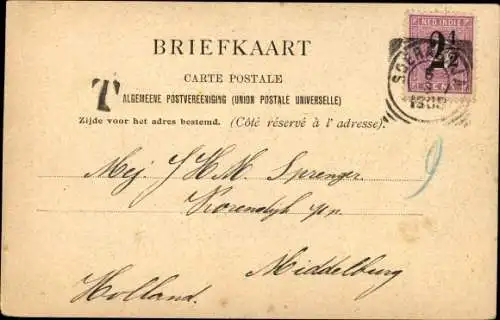 BRIEFKAART
CARTE POSTALE
ALGEMEENE POSTVEREENIGING (UNION POSTALE UNIVERSELLE)
Zijde voor het adres bestemd. (Côté réservé à l'adresse).
T
NED-INDIE
2 1/2
Mej. J H. M. Sprenger
Korendijk
Middelburg
Holland.
9